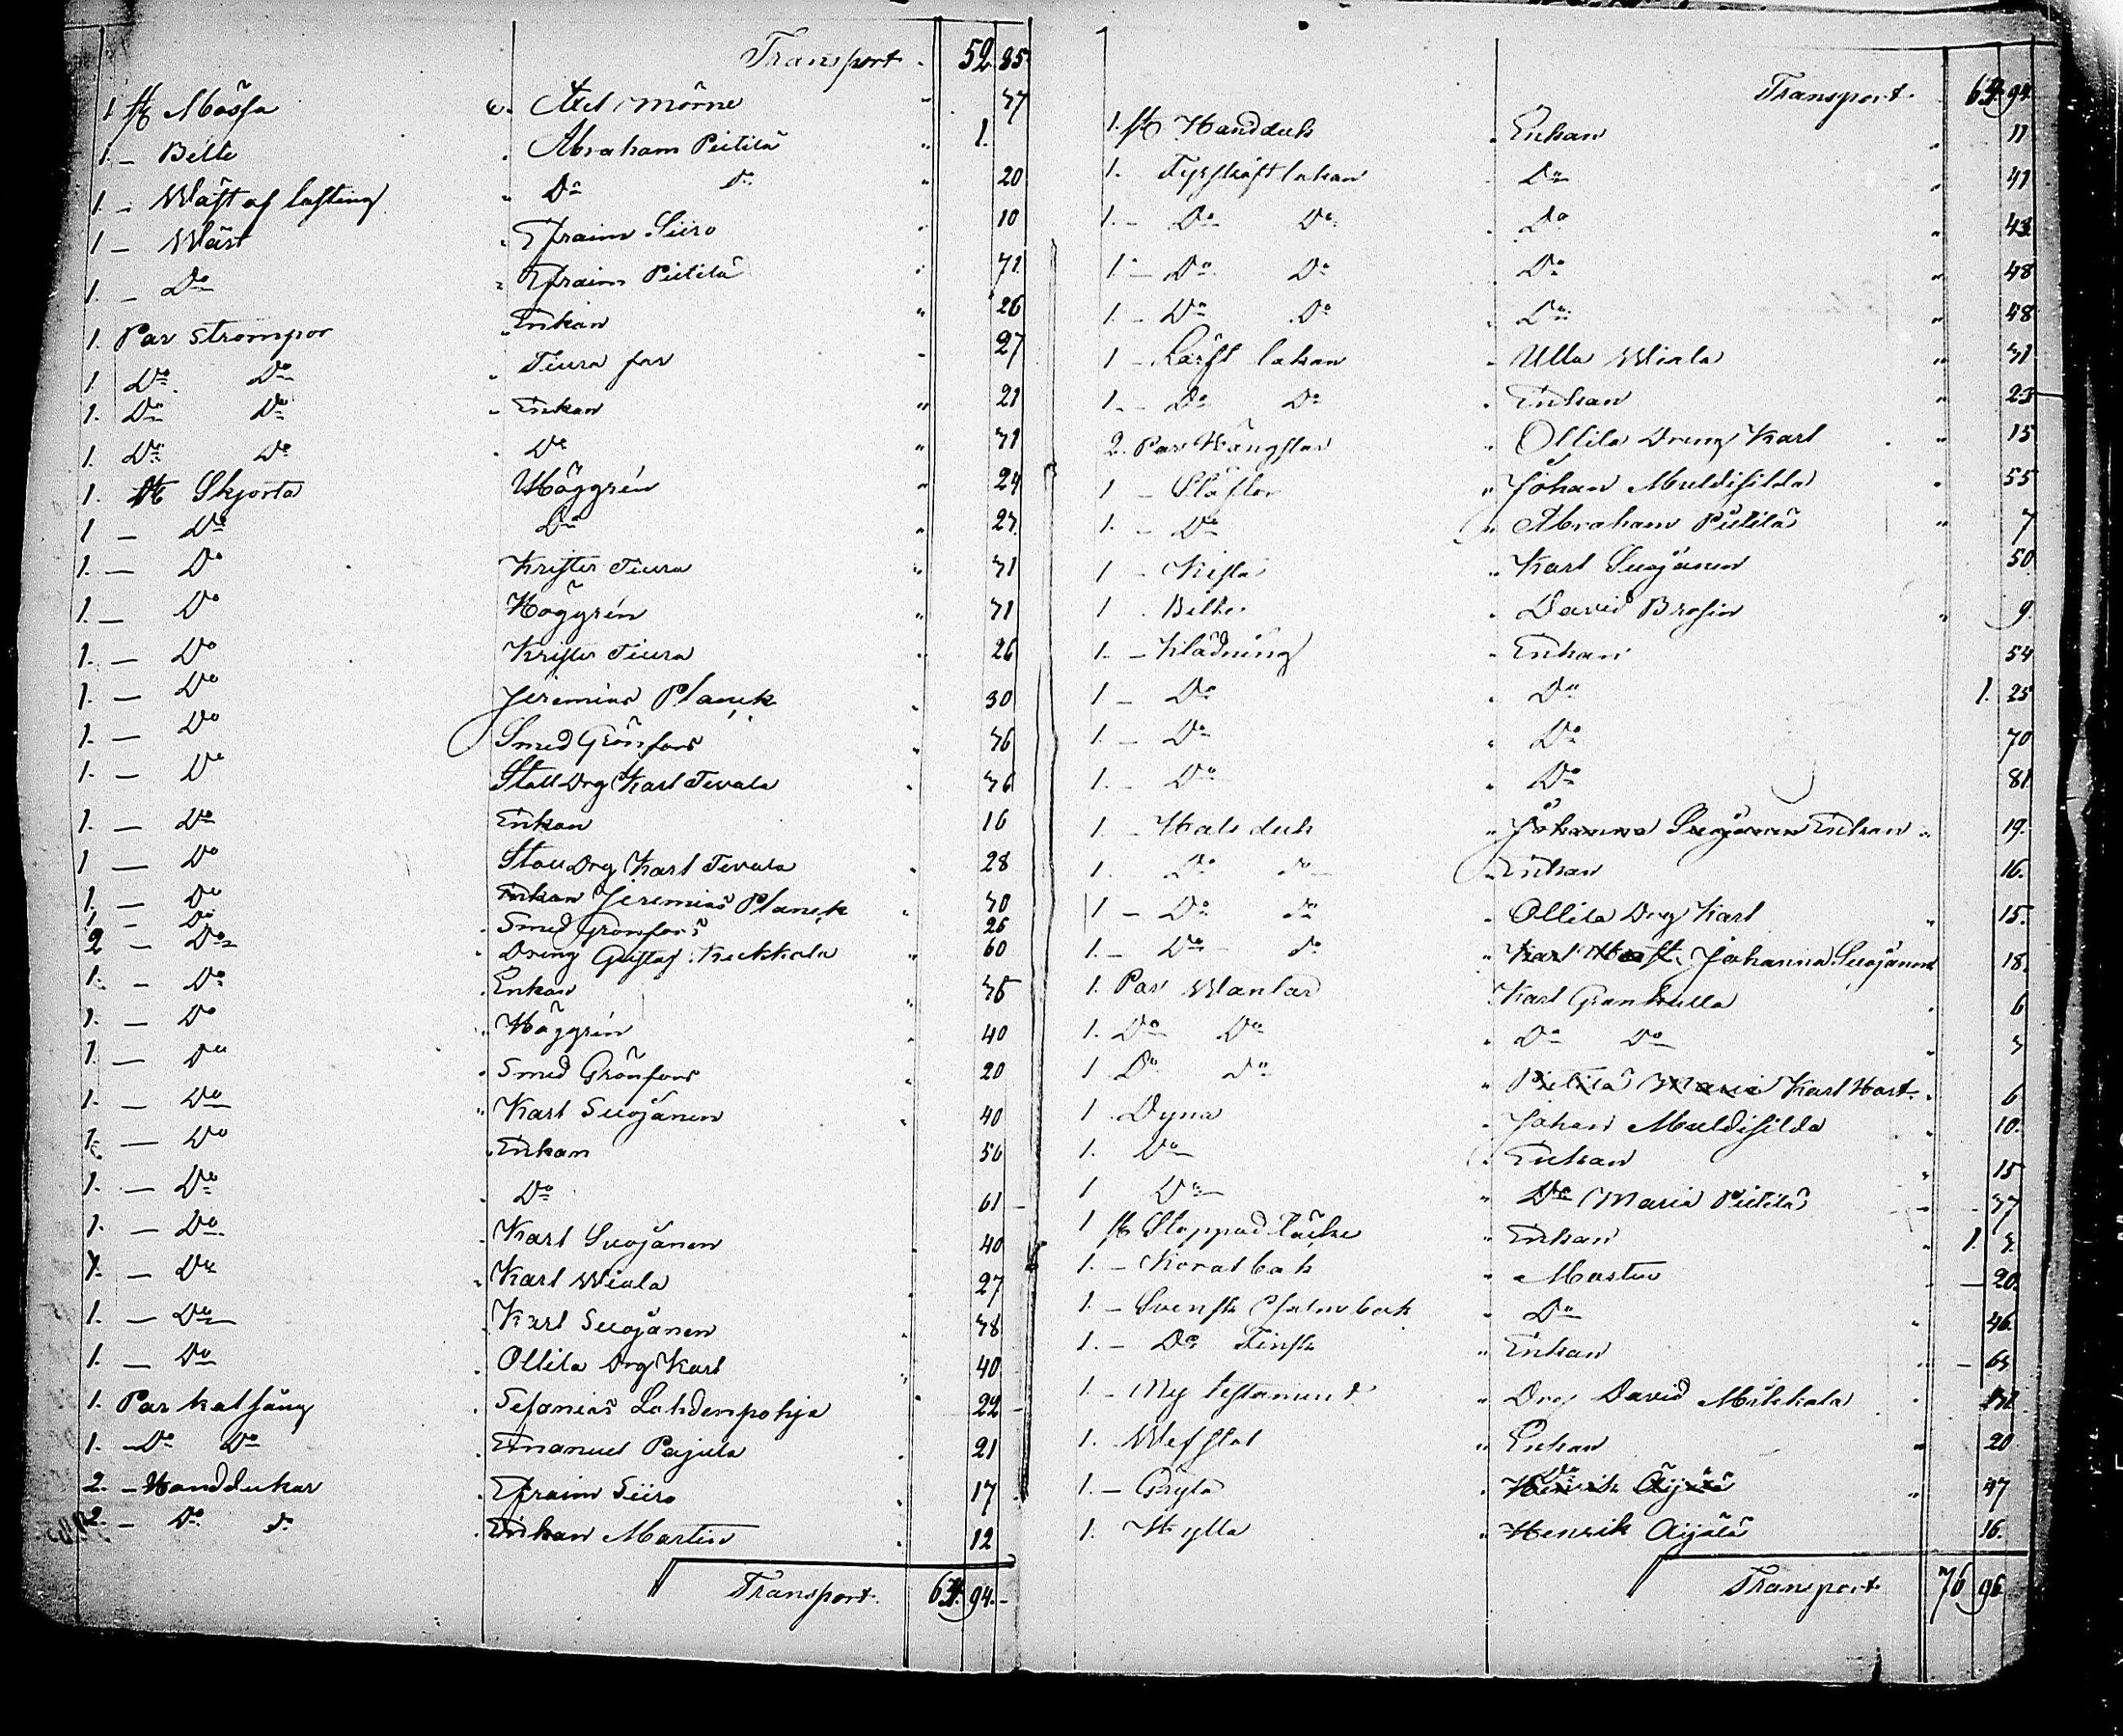 Transport 52 85
1 st Mössa Axel Mörne 37
1. – Bälte Abraham Pietilä 1.
1. – Wäst af lasting Do Do 20
1 – Wäst Efraim Siiro 10
1. – Do Efraim Pietilä 71
1. Par Strumpor Enkan 26
1. Do Do Tiura far 27
1. Do Do Enkan 21
1. Do Do Do 31
1. st Skjorta Häggrén 24
1 – Do Do 27
1. – Do Krister Tiura 31
1. – Do Häggrén 31
1. – Do Krister Tiura 26
1. – Do Jeremias Planck 30
1. – Do Smed Grönfors 36
1. – Do Stall Drg Karl Tevala 36
1. – Do Enkan 16
1 – Do Stall Drg Karl Tevala 28
1. – Do Enkan Jeremias Planck 30
1 – Do Smed Grönfors 26
2 – Do Dreng Gustaf Kukkola 60
1. – Do Enkan 35
1. – Do Häggrén 40
1. – Do Smed Grönfors 20
1. – Do Karl Suojanen 40
1. – Do Enkan 50
1. – Do Do 61
1. – Do Karl Suojanen 40
1. – Do Karl Wiala 27
1. – Do Karl Suojanen 38
1. – Do Ollila Drg Karl 40
1. Par kalsång Sefanias Lahdenpohja 22
1. – Do Do Emanuel Pajula 21
2. – Handdukar Efraim Siiro 17
2. – Do d. Enkan Martin 12
Transport 63 94
Transport 63 94
1. st Handduk Enkan 11
1. Fyrskäft lakan Do 41
1. – Do Do Do 43
1 – Do Do Do 48
1. – Do Do Do 48
1 – Lärft lakan Ulla Wiala 31
1. – Do Do Enkan 23
2. Par Hängslar Ollila Dreng Karl 15
1 – Stöflor Johan Muldisilda 55
1. – Do Abraham Pietilä 7
1 – Kista Karl Suojanen 50
1 . Bälte David Brosin 9
1. – Klädning Enkan 54
1 – Do Do 1. 25
1. – Do Do 70
1. – Do Do 81
1 – Halsduk Johanna Suojanen Enkan 19.
1. Do d Enkan 16.
1 – Do do Ollila Drg Karl 15.
1. – Do d. Karl Hast Johanna Suojanen 18.
1. Par Wantar Karl Grankulla 6
1. Do Do Do Do 3
1 Do Do Pietilä Maria Karl Hast 6
1 . Dyna Johan Muldisilda 10.
1. Do Enkan 15
1 Do Do Maria Pietilä 37
1 st Stoppad täcke Enkan 1. 3.
1. – Koralbok Martin 20
1. – Svensk Psalmbok Do 46.
1. – Do Finsk Enkan 63
1. – Ny testament Drg David Mikkala
1. – Wefstol Enkan 20
1. – Gryta Henrik Äijälä Do 47
1. Hylla Henrik Äijälä 16.
Transport 76 96